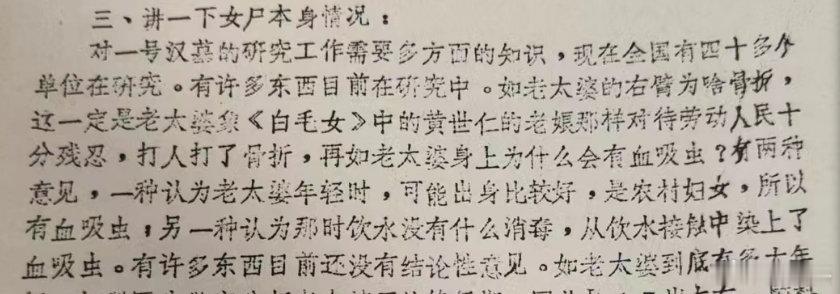 三、讲一下女尸本身情况：
对一号汉墓的研究工作需要多方面的知识，现在全国有四十多个
单位在研究。有许多东西目前在研究中。如老太婆的右臂为啥骨折，
这一定是老太婆象《白毛女》中的黄世仁的老娘那样对待劳动人民十
分残忍，打人打了骨折，再如老太婆身上为什么会有血吸虫？有两种
意见，一种认为老太婆年轻时，可能出身比较好，是农村妇女，所以
有血吸虫；另一种认为那时饮水没有什么消毒，从饮水接触中染上了
血吸虫。有许多东西目前还没有结论性意见。如老太婆到底有几十年